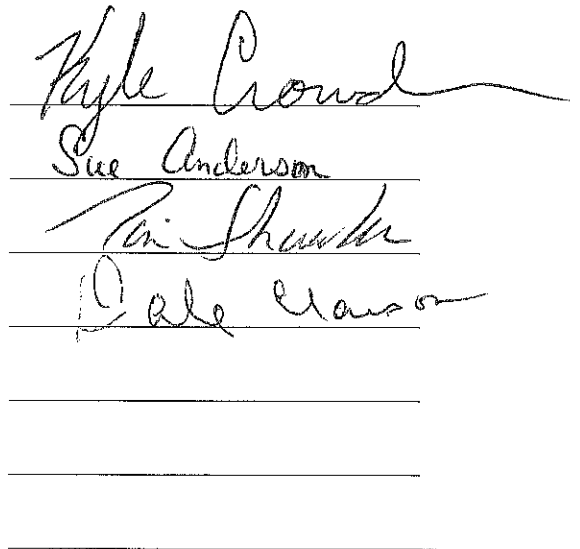 Kyle Crowd
Sue Anderson
Tim
Dale Clawson